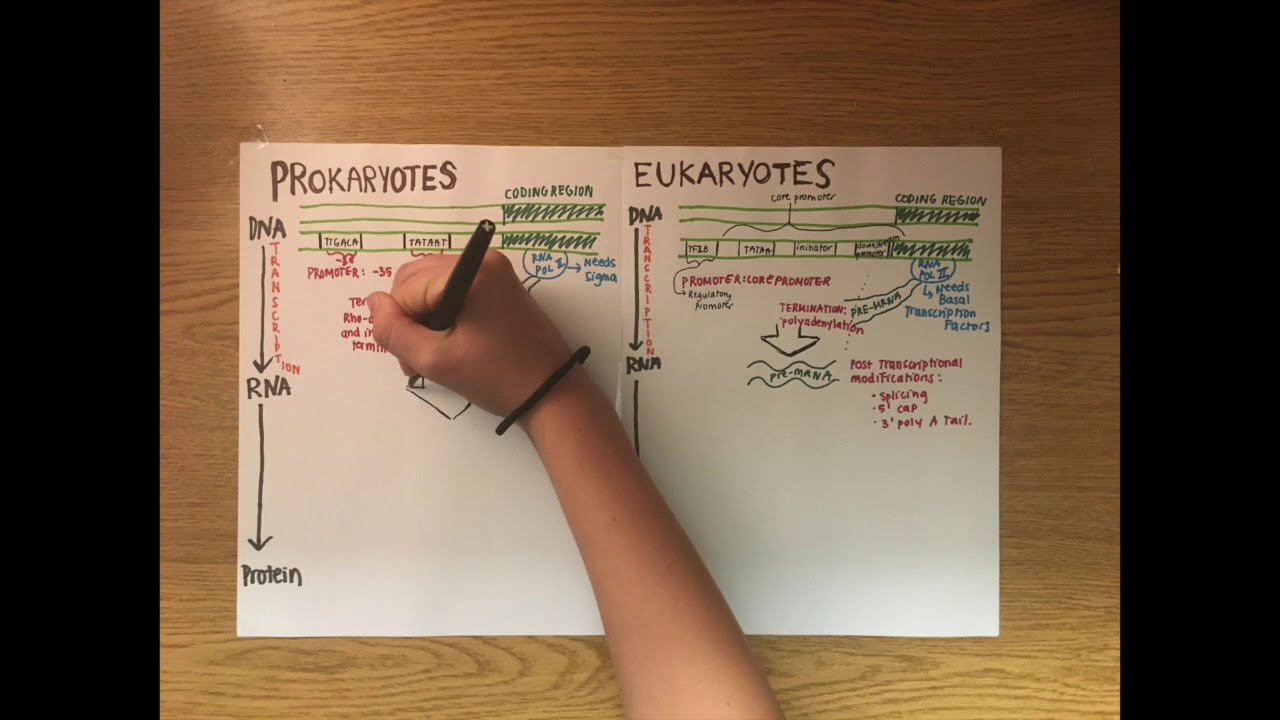 PROKARYOTES
CODING REGION
DNA
TTGACA
TATAAT
-35
PROMOTER: -35
RNA
POL II
Needs
Sigma
TRANSCRIPTION
and
RNA
Protein
EUKARYOTES
core promoter
CODING REGION
DNA
TFIIB
TATAA
initiator
promoter
RNA
POL II
PROMOTER: CORE PROMOTER
Regulatory
Promoter
Needs
Basal
Transcription
Factors
TERMINATION:
polyadenylation
PRE-MRNA
TRANSCRIPTION
RNA
Pre-mRNA
Post Transcriptional
modifications:
• splicing
• 5' cap
• 3' poly A Tail.